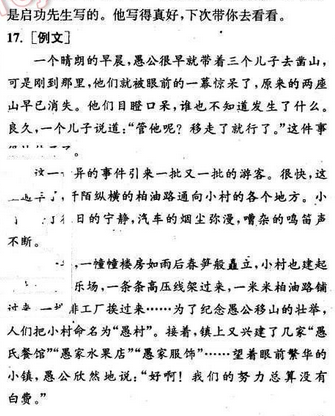 是启功先生写的。他写得真好,下次带你去看看。
17. [例文]
一个晴朗的早晨,愚公很早就带着三个儿子去凿山,
可是刚到那里,他们就被眼前的一幕惊呆了,原来的两座
山早已消失。他们目瞪口呆,谁也不知道发生了什么。
良久,一个儿子说道:“管他呢?移走了就行了。”这件事
这一 异的事件引来一批又一批的游客。很快,这
阡陌纵横的柏油路通向小村的各个地方。小
日的宁静,汽车的烟尘弥漫,嘈杂的鸣笛声
不断。
,一幢幢楼房如雨后春笋般矗立,小村也建起
乐场,一条条高压线架过来,一米米柏油路铺
工厂挨过来……为了纪念愚公移山的壮举,
人们把小村命名为“愚村”。接着,镇上又兴建了几家“愚
氏餐馆”“愚家水果店”“愚家服饰”……望着眼前繁华的
小镇,愚公欣然地说:“好啊!我们的努力总算没有
白费。”